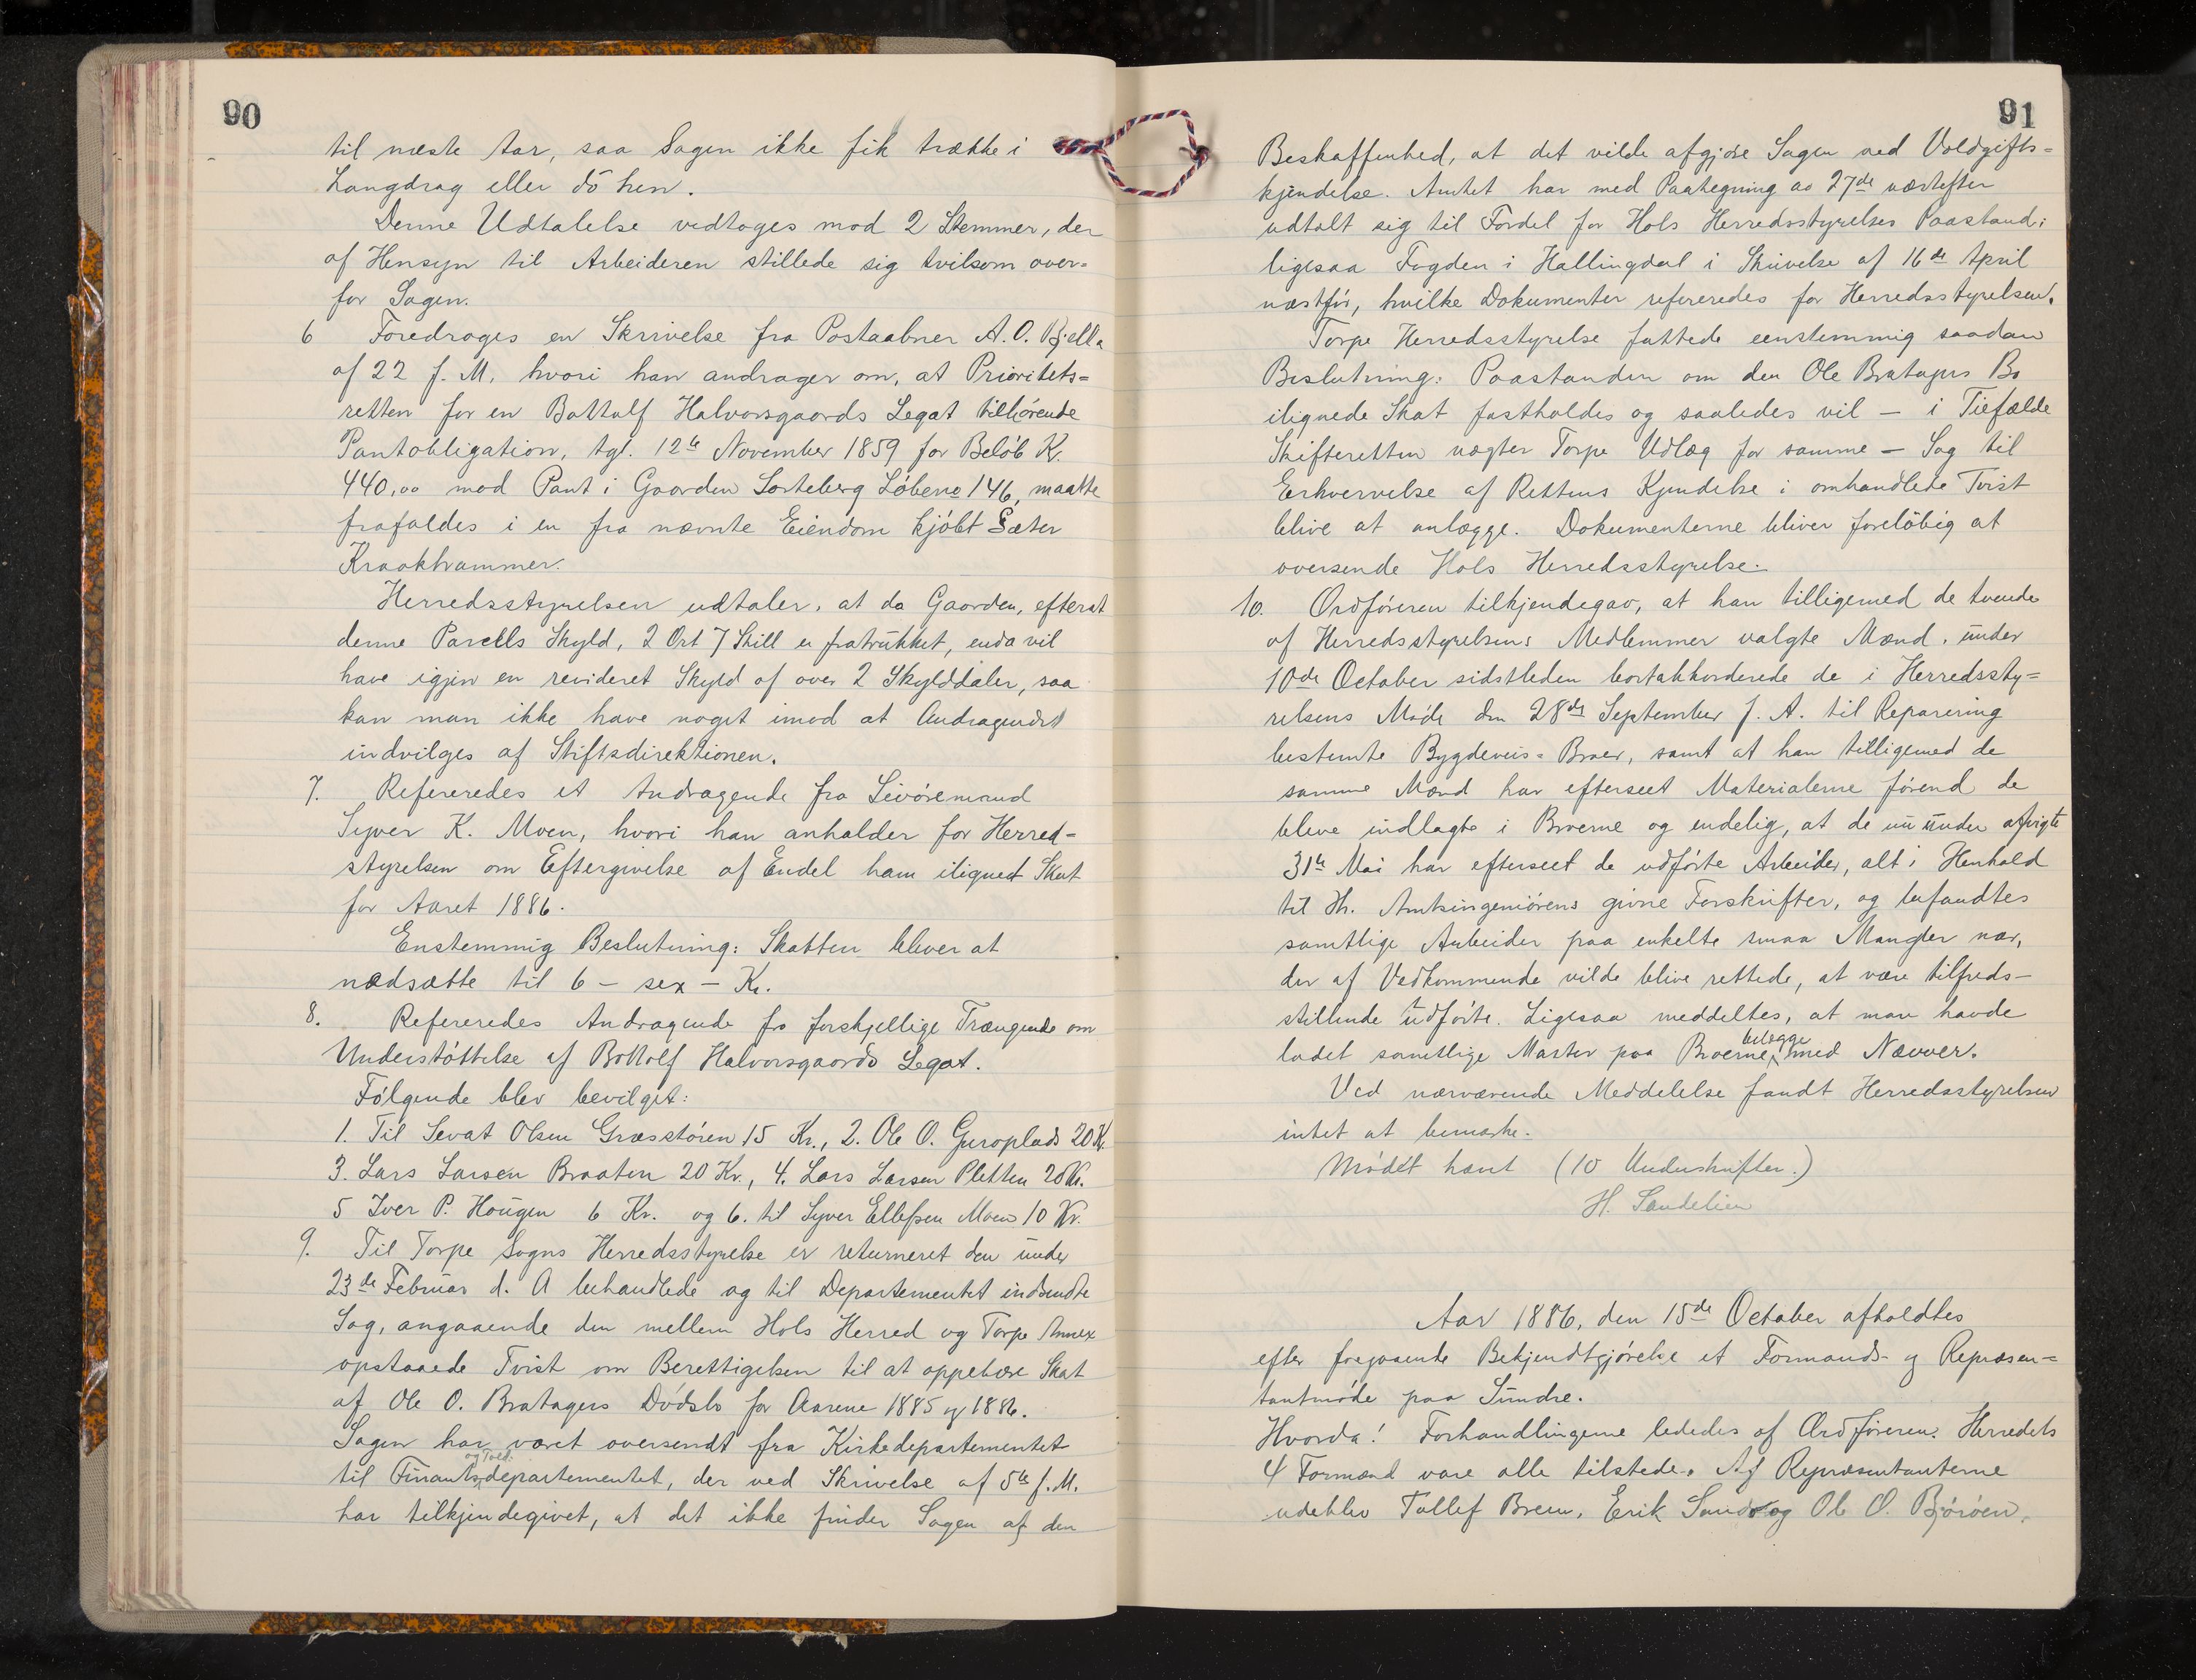 90
til næste Aar, saa Sagen ikke fik trække i
Langdrag eller dö hen.
Denne Udtalelse vedtoges mod 2 Stemmer, der
af Hensyn til Arbeideren stillede sig tvilsom over-
for Sagen.
6 Foredroges en Skrivelse fra Postaabner A. O. Bjella
af 22 f. M. hvori han andrager om, at Prioritets=
retten for en Bottolf Halvorsgaards Legat tilhörende
Pantobligation, tgl. 12te November 1859 for Belöb Kr.
440,00 mod Pant i Gaarden Sorteberg Löbeno 146, maatte
frafaldes i en fra nævnte Eiendom kjöbt Sæter
Kraakhammer.
Herredsstyrelsen udtaler, at da Gaarden, efterat
denne Parcells Skyld, 2 Ort 7 Skill er fratrukket, enda vil
have igjen en revideret Skyld af over 2 Skylddaler, saa
kan man ikke have noget imod at Andragendet
indvilges af Stiftsdirektionen.
7. Refereredes et Andragende fra Livöremand
Syver K. Moen, hvori han anholder for Herred-
styrelsen om Eftergivelse af Endel ham ilignet Skat
for Aaret 1886.
Enstemmig Beslutning: Skatten bliver at
nedsætte til 6 - sex - Kr.
8. Refereredes Andragende fra forskjellige Trængende om
Understöttelse af Bottolf Halvorsgaards Legat.
Fölgende blev bevilget:
1. Til Sevat Olsen Græsstören 15 Kr., 2. Ole O. Guroplads 20 Kr.
3. Lars Larsen Braaten 20 Kr., 4. Lars Larsen Pletten 20 Kr.
5 Iver P. Hougen 6 Kr. og 6. til Syver Ellefsen Moen 10 Kr.
9. Til Torpe Sogns Herredsstyrelse er returneret den under
23de Februar d. A behandlede og til Departementet indsendte
Sag, angaaende den mellem Hols Herred og Torpe Annex
opstaaede Tvist om Berettigelsen til at oppebære Skat
af Ole O. Bratagers Dödsbo for Aarene 1885 og 1886.
Sagen har været oversendt fra Kirkedepartementet
og Told.
til Finantsdepartementet, der ved Skrivelse af 5te f. M.
har tilkjendegivet, at det ikke finder Sagen af den
91
Beskaffenhed, at det vilde afgjöre Sagen ved Voldgifts=
kjendelse. Amtet har med Paategning av 27de næstefter
udtalt sig til Fordel for Hols Herredsstyrelses Paastand;
ligesaa Fogden i Hallingdal i Skrivelse af 16de April
næstför, hvilke Dokumenter refereredes for Herredsstyrelsen.
Torpe Herredsstyrelse fattede eenstemmig saadan
Beslutning: Paastanden om den Ole Bratagers Bo
ilignede Skat fastholdes og saaledes vil - i Tilfælde
Skifteretten nægter Torpe Udlæg for samme - Sag til
Erhvervelse af Rettens Kjendelse i omhandlede Tvist
blive at anlægge. Dokumenterne bliver forelöbig at
oversende Hols Herredsstyrelse.
10. Ordföreren tilkjendegav, at han tilligemed de tvende
af Herredsstyrelsens Medlemmer valgte Mænd, under
10de October sidstleden bortakkorderede de i Herredssty=
relsens Möde den 28de September f. A. til Reparering
bestemte Bygdeveis=Broer, samt at han tilligemed de
samme Mænd har efterseet Materialerne förend de
bleve indlagte i Broerne og endelig, at de nu under afvigte
31te Mai har efterseet de udförte Arbeider, alt i Henhold
til Hr. Amtsingeniörens givne Forskrifter, og befandtes
samtlige Arbeider paa enkelte smaa Mangler nær,
der af Vedkommende vilde blive rettede, at være tilfreds-
stillende udförte. Ligesaa meddeltes, at man havde
belægge
ladet samtlige Master paa Broerne med Nævver.
Ved nærværende Meddelelse fandt Herredsstyrelsen
intet at bemærke.
Mödet hævt (10 Underskrifter.)
H. Sandelien
Aar 1886, den 15de October afholdtes
efter foregaaende Bekjendtgjörelse et Formands- og Repræsen=
tantmöde paa Sundre.
Hvorda! Forhandlingerne lededes af Ordföreren. Herredets
4 Formænd vare alle tilstede. Af Repræsentanterne
udeblev Tollef Breen, Erik Sando og Ole O. Björöen.